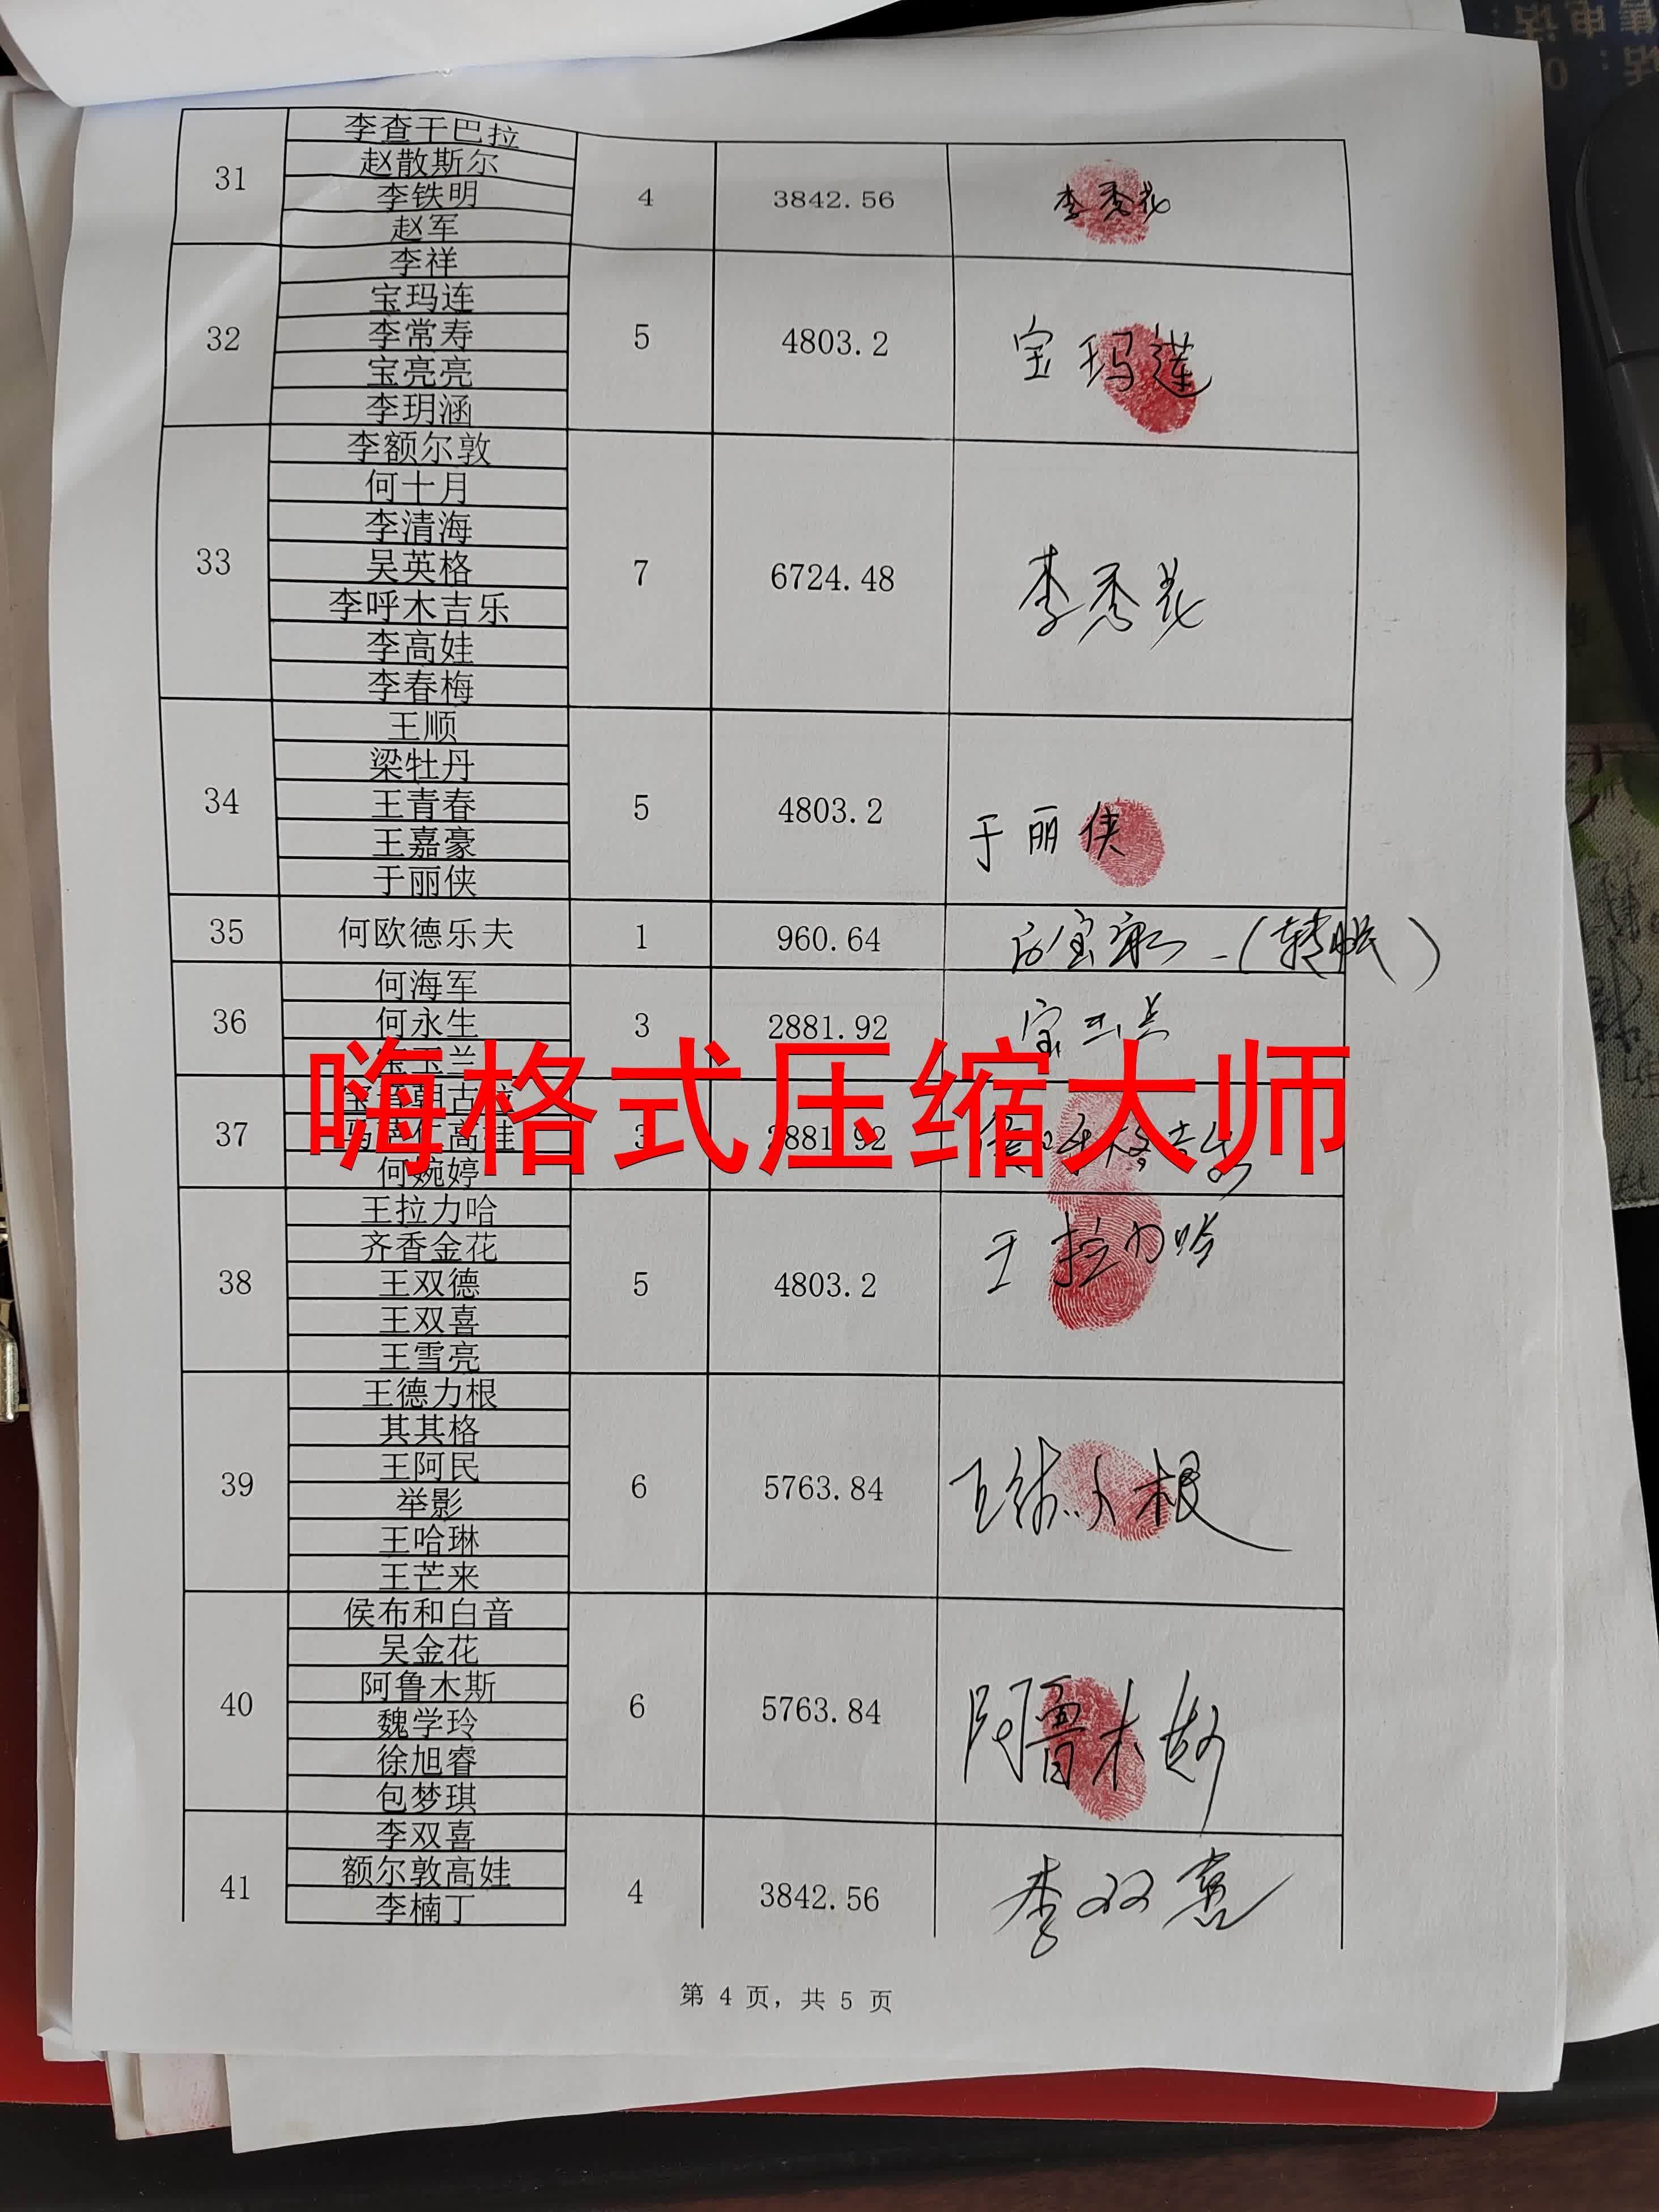 31 李查干巴拉 4 3842.56 李秀花
赵散斯尔
李铁明
赵军
32 李祥 5 4803.2 宝玛莲
宝玛连
李常寿
宝亮亮
李玥涵
33 李额尔敦 7 6724.48 李秀花
何十月
李清海
吴英格
李呼木吉乐
李高娃
李春梅
34 王顺 5 4803.2 于丽侠
梁牡丹
王青春
王嘉豪
于丽侠
35 何欧德乐夫 1 960.64 (转账)
36 何海军 3 2881.92 宝玉兰
何永生
宝玉兰
嗨格式压缩大师
37 3 2881.92
何婉婷
38 王拉力哈 5 4803.2 王拉力哈
齐香金花
王双德
王双喜
王雪亮
39 王德力根 6 5763.84 王德力根
其其格
王阿民
举影
王哈琳
王芒来
40 侯布和白音 6 5763.84 阿鲁木斯
吴金花
阿鲁木斯
魏学玲
徐旭睿
包梦琪
41 李双喜 4 3842.56 李双喜
额尔敦高娃
李楠丁
第 4 页，共 5 页